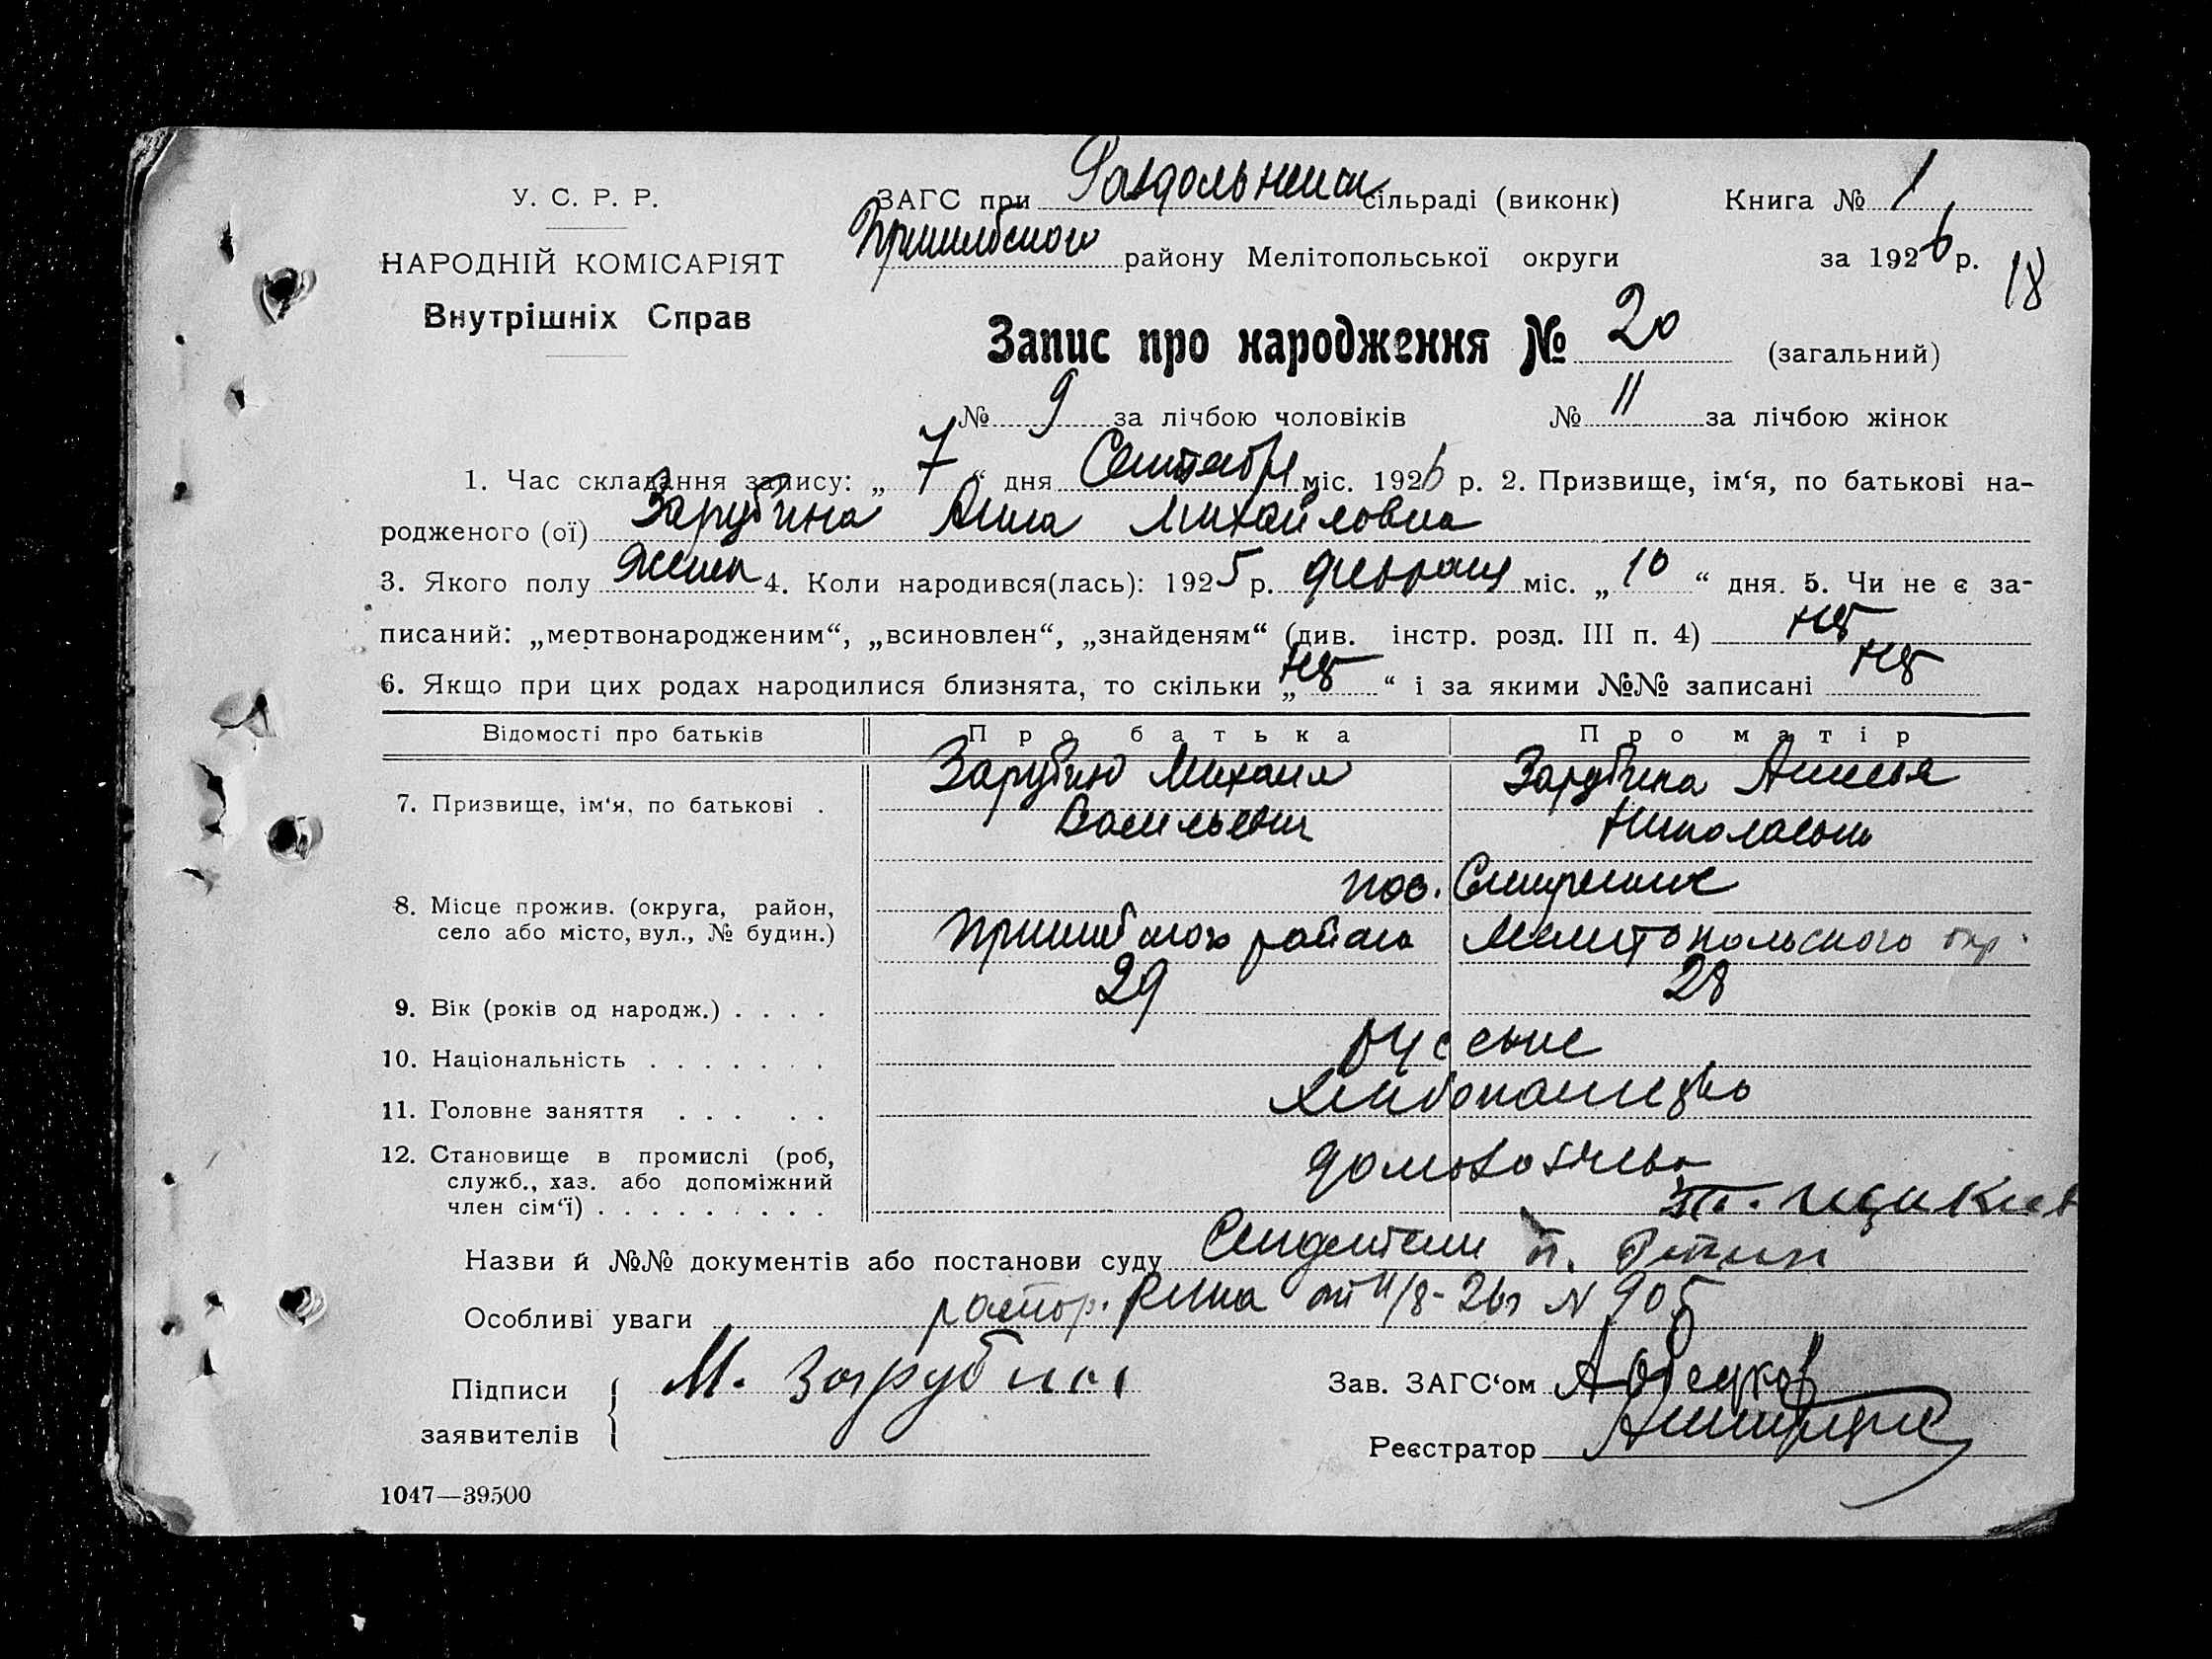 У. С. Р. Р.
НАРОДНІЙ КОМІСАРІЯТ
Внутрішніх Справ
ЗАГС при Раздольненск сільраді (виконк) Книга № 1
Пришибского району Мелітопольської округи за 1926 р.
18
Запис про народження № 20 (загальний)
№ 9 за лічбою чоловіків № 11 за лічбою жінок
1. Час складання запису: „ 7 “ дня Сентября міс. 1926 р. 2. Призвище, ім‘я, по батькові на-
родженого (ої) Зарубина Анна Михайловна
3. Якого полу 4. Коли народився(лась): 1925 р. февраля міс. „ 10 “ дня. 5. Чи не є за-
писаний: „мертвонародженим“, „всиновлен“, „знайденям“ (див. інстр. розд. III п. 4) нет
6. Якщо при цих родах народилися близнята, то скільки „ нет “ і за якими №№ записані нет
Відомості про батьків Про батька Про матір
7. Призвище, ім‘я, по батькові . Зарубин Михаил Зарубина
Васильевич Николаевна
8. Місце прожив. (округа, район,
село або місто, вул., № будин.) пос.
Пришибского района Мелитопольского окр.
9. Вік (років од народж.) . . . . 29 28
10. Національність . . . . . . . русские
11. Головне заняття . . . . . хлебопашество
12. Становище в промислі (роб,
служб., хаз. або допоміжний
член сім‘ї) . . . . . . . . .
Назви й №№ документів або постанови суду
Особливі уваги распор. РИКа от 11/8-26г N 905
Підписи М. Зарубин Зав. ЗАГС‘ом
заявителів Реєстратор
1047—39500